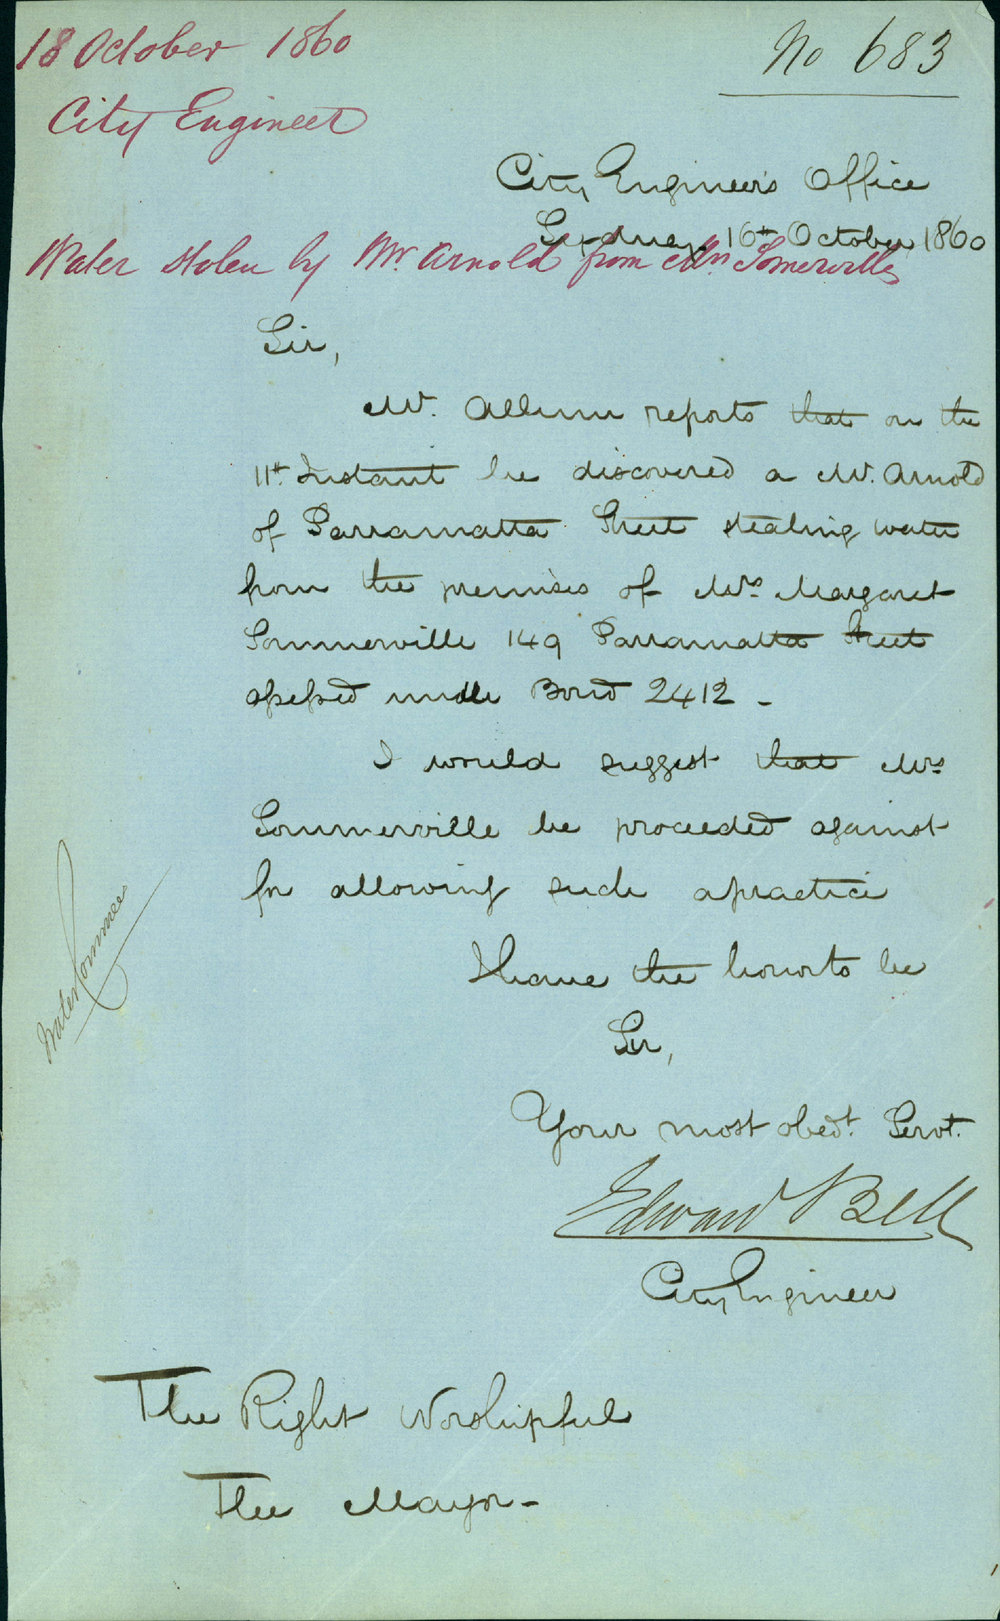 18 October 1860
No 683
City Engineer
City Engineer's Office
Sydney 16th October 1860
Water stolen by Mr. Arnold from Mrs Somerville
Sir,
Mr. Allum reports that on the
11th Instant he discovered a Mr. Arnold
of Parramatta Street stealing water
from the premises of Mrs. Margaret
Sommerville 149 Parramatta Street
assessed under Bond 2412 -
I would suggest that Mrs
Sommerville be proceeded against
for allowing such a practice
I have the honor to be
Sir,
Your most obedt. Servt.
Edward Bell
City Engineer
Water Commee
The Right Worshipful
The Mayor -